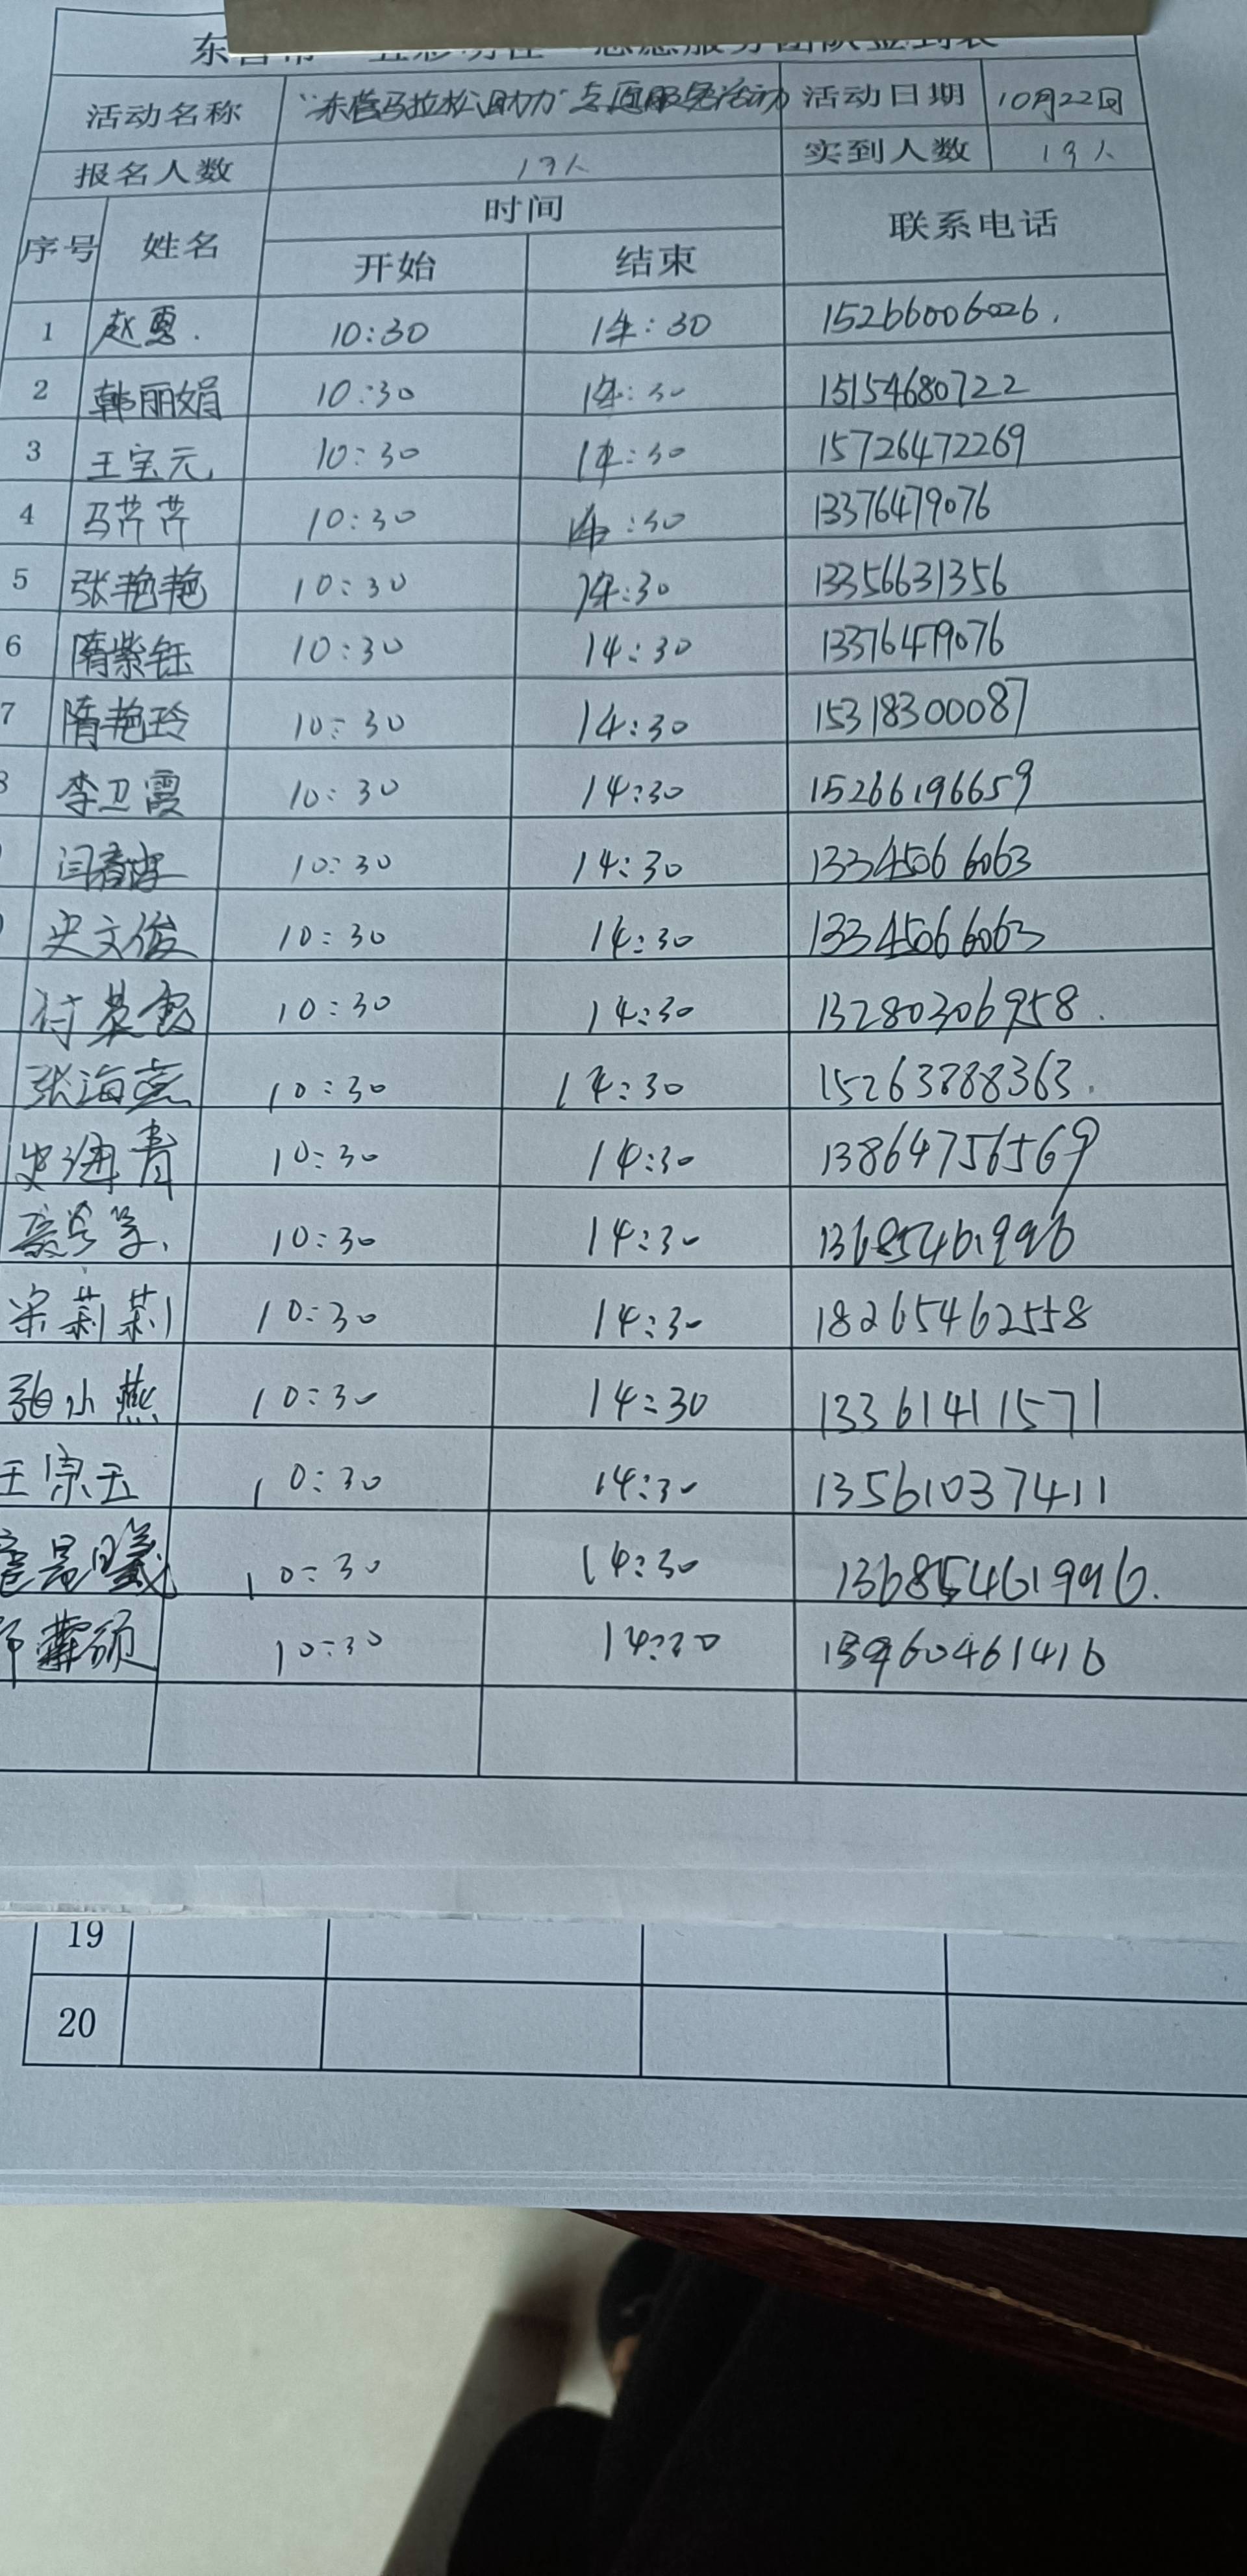 活动名称 "东营马拉松助力"志愿服务活动 活动日期 10月22日
报名人数 19人 实到人数 19人
序号 姓名 时间 联系电话
开始 结束
1 赵勇. 10:30 14:30 15266006026.
2 韩丽娟 10:30 14:30 15154680722
3 王宝元 10:30 14:30 15726472269
4 马芹芹 10:30 14:30 13376479076
5 张艳艳 10:30 14:30 13356631356
6 隋紫钰 10:30 14:30 13376479076
7 隋艳玲 10:30 14:30 15318300087
李卫霞 10:30 14:30 15266196659
10:30 14:30 13345066063
史文俊 10:30 14:30 13345066063
10:30 14:30 13280306958.
张海燕 10:30 14:30 15263888363.
史海青 10:30 14:30 13864756569
10:30 14:30 13685461996
宋莉莉 10:30 14:30 18265462558
张小燕 10:30 14:30 13361411571
王宗玉 10:30 14:30 13561037411
10:30 14:30 13685461996.
10:30 14:30
19
20